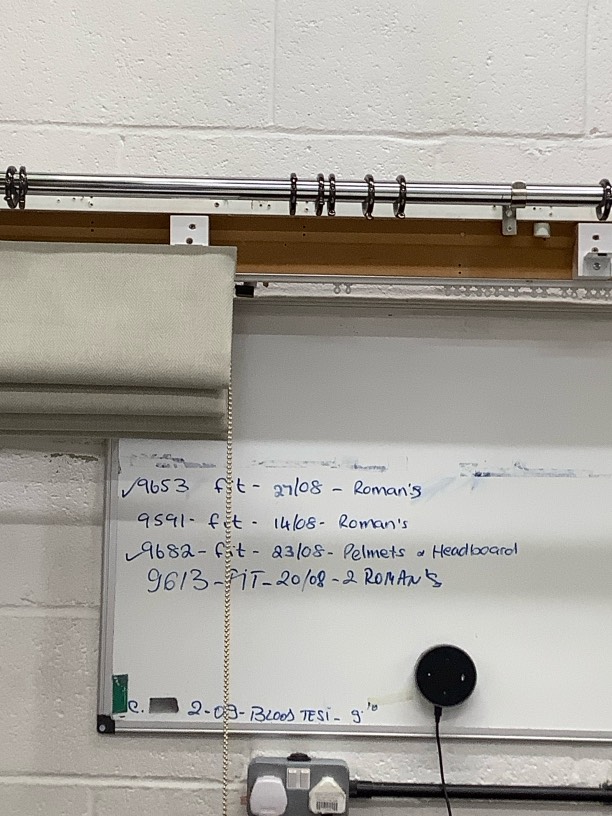 ✓9653 fit - 27/08 - Roman's
9591- fit - 14/08- Roman's
✓9682 - fit - 23/08- Pelmets & Headboard
9613-FIT-20/08-2 ROMAN'S
C. 2-09-BLOOD TEST- 9'10
3